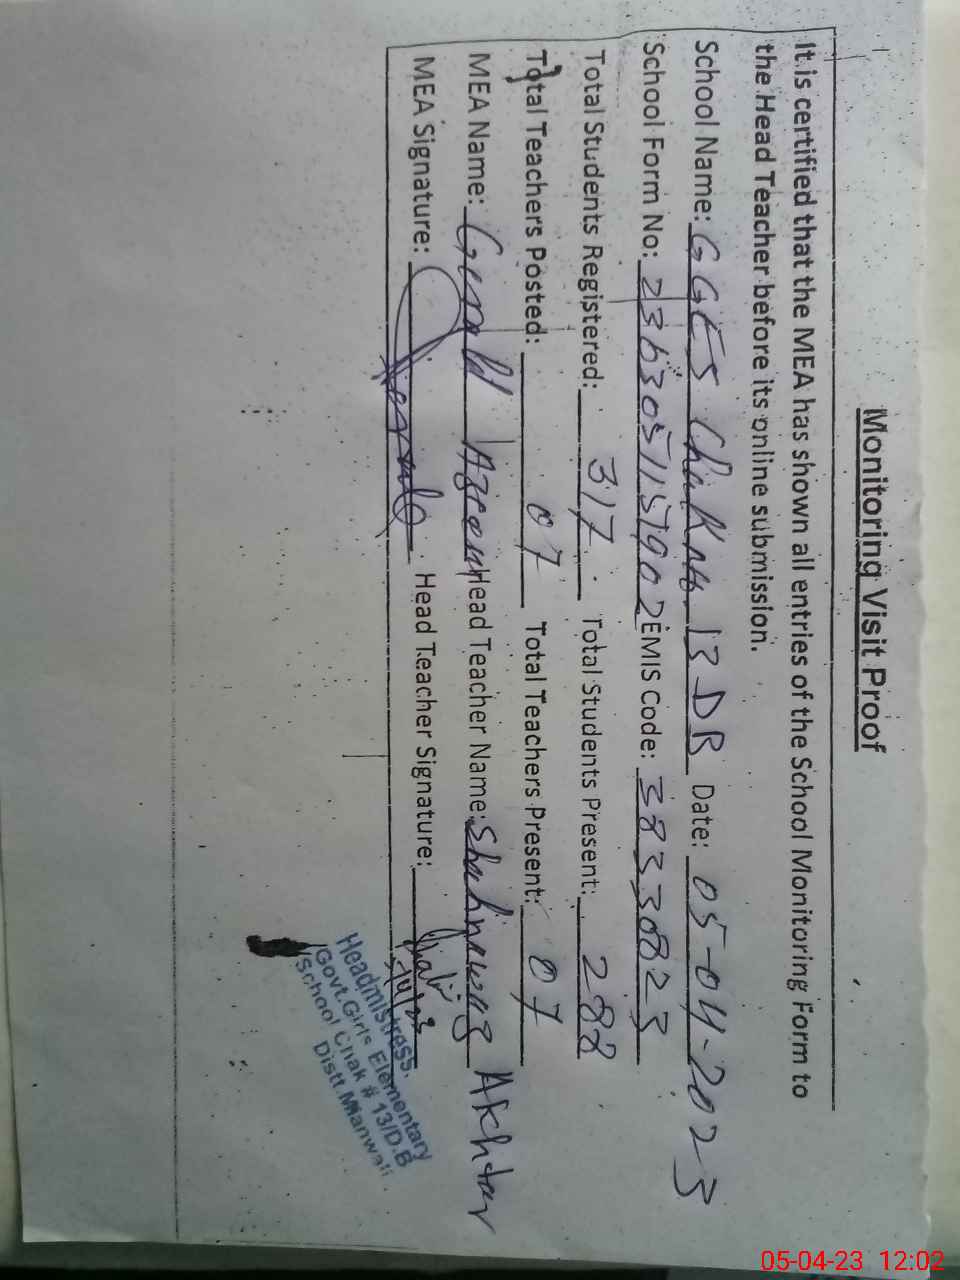 Monitoring Visit Proof
It is certified that the MEA has shown all entries of the School Monitoring Form to
the Head Teacher before its online submission.
School Name: GGES Chak No. 13 DB Date: 05-04-2023
School Form No: EMIS Code: 38330823
Total Students Registered: 317 Total Students Present: 288
Total Teachers Posted: 07 Total Teachers Present: 07
MEA Name: Head Teacher Name: Shahnawaz Akhtar
MEA Signature: Head Teacher Signature:
Headmistress.
Govt. Girls Elementary
School Chak # 13/D.B
Distt. Mianwali
05-04-23 12:02